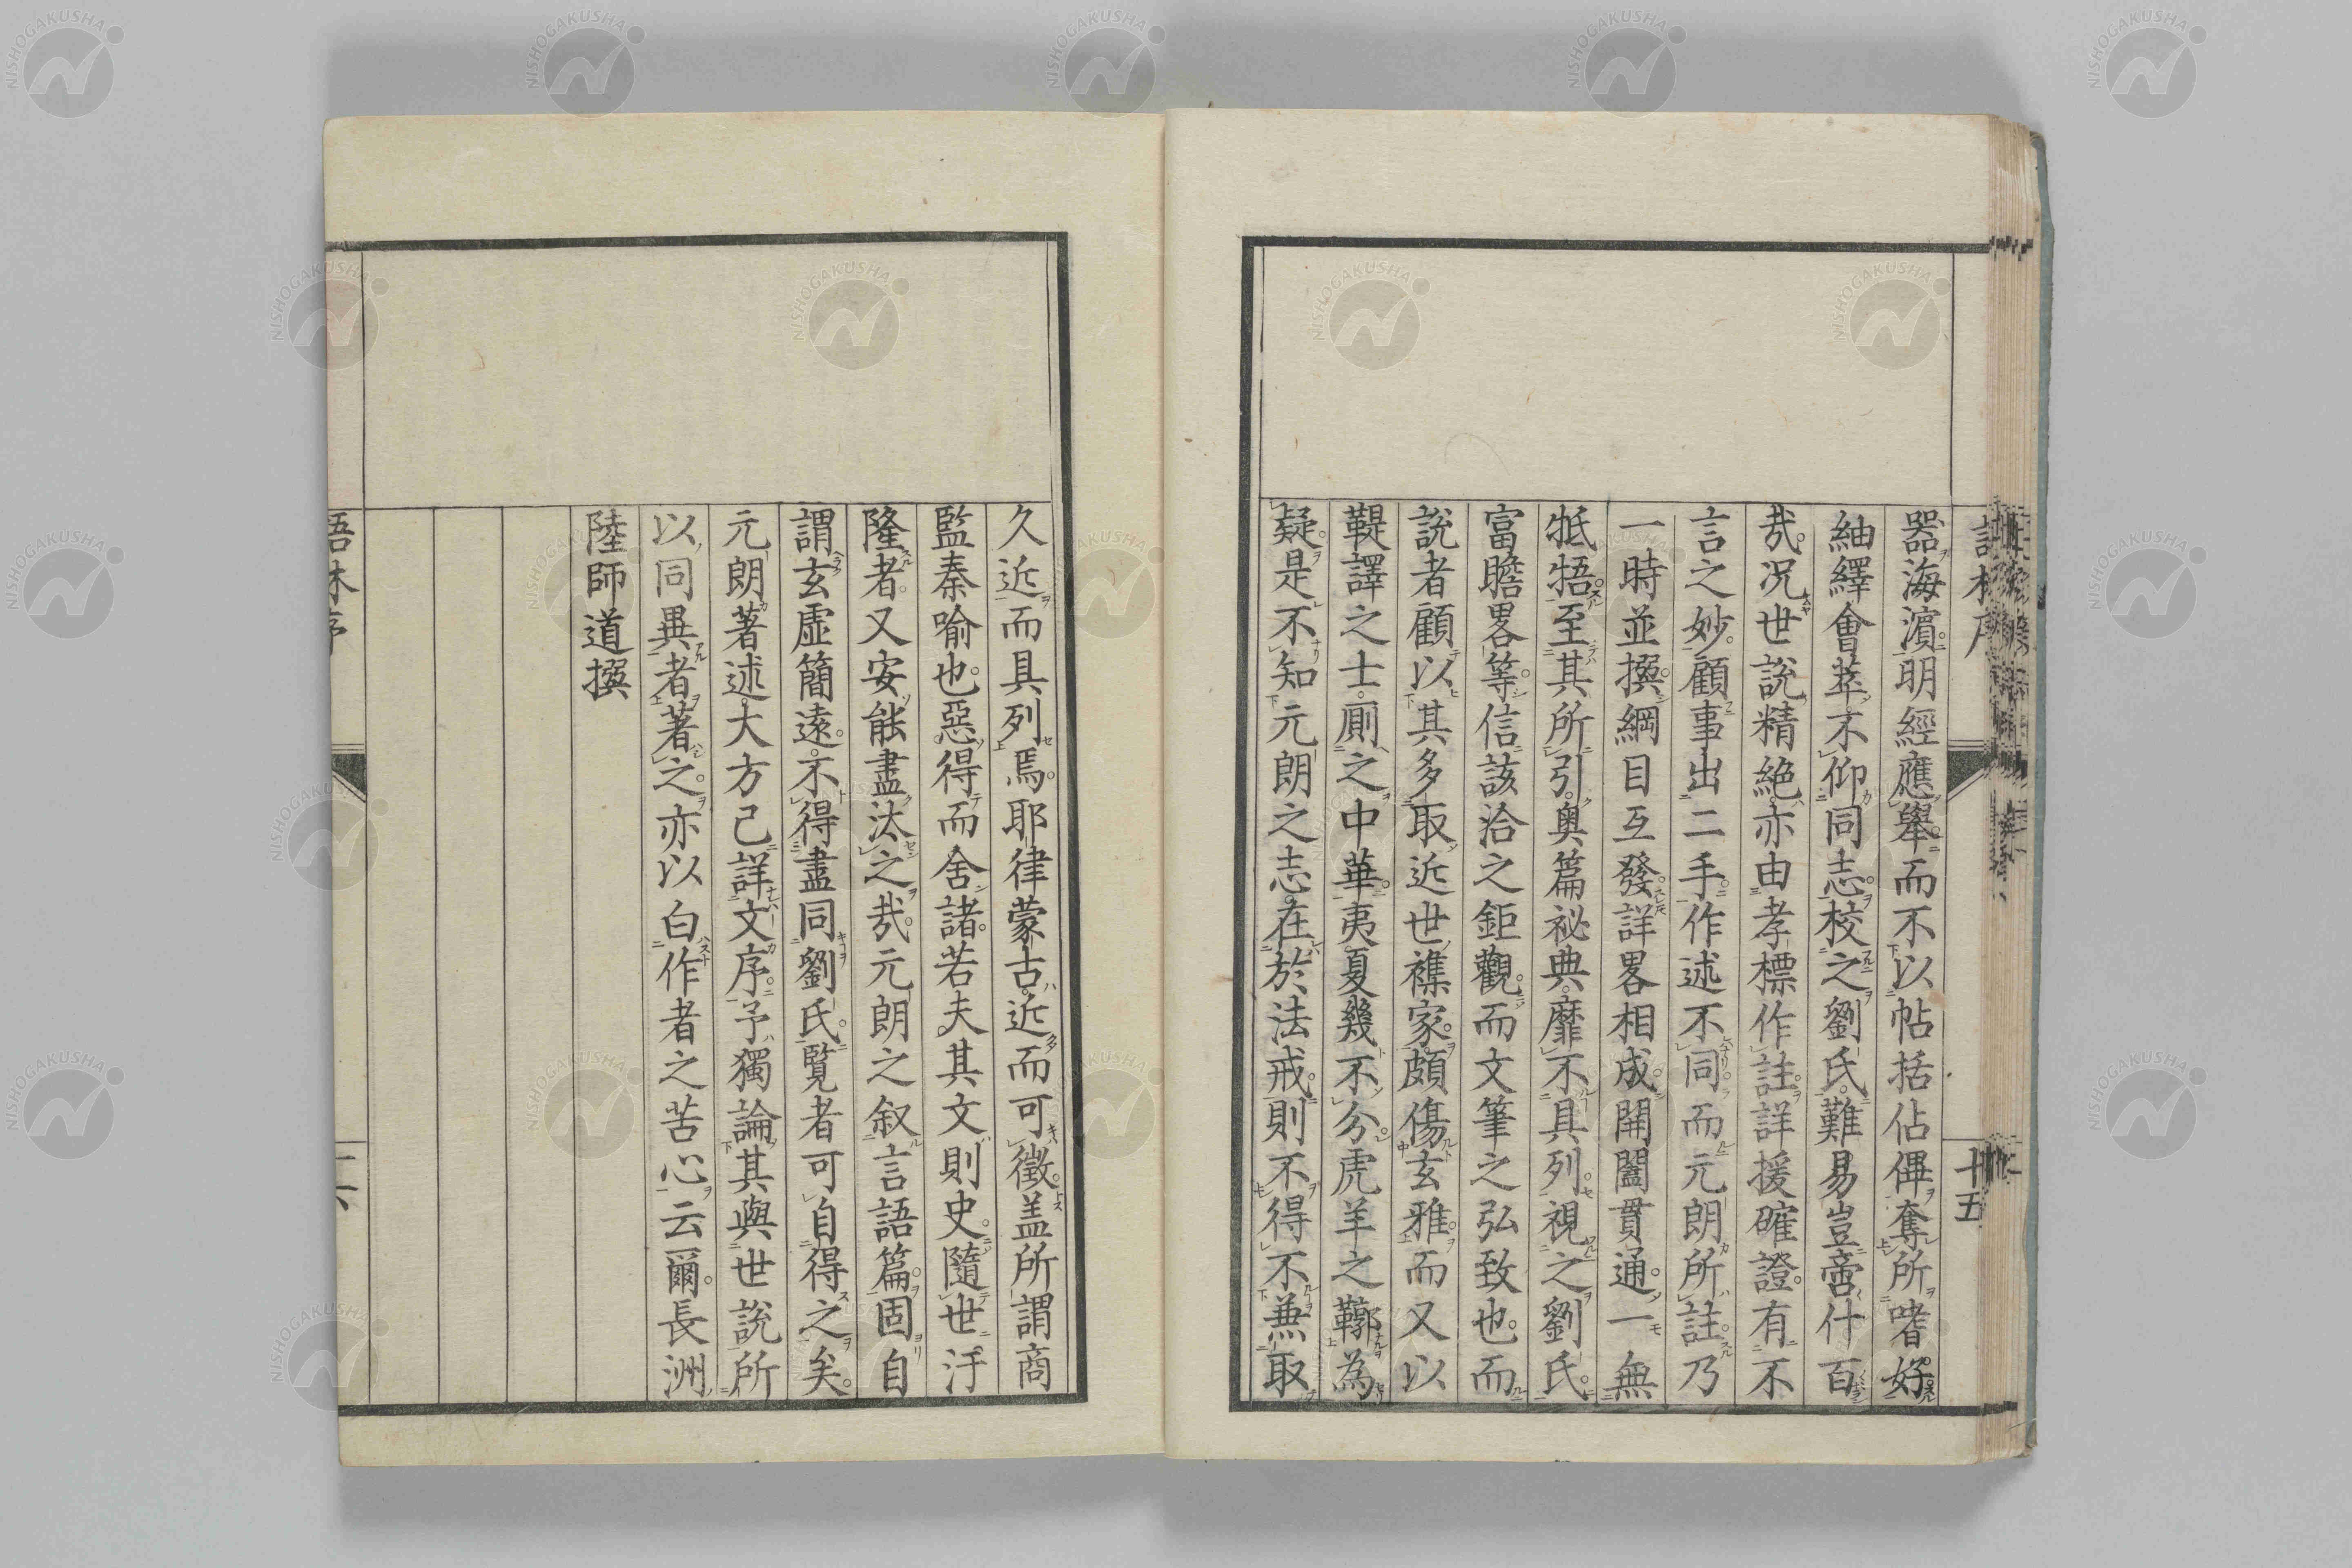 器海濵明經應舉而不以帖括佔俾奪所嗜好
紬繹會萃不仰同志校之劉氏難易豈啻什百
㢤况世說精絶亦由孝標作註詳援確證有不
言之妙顧事出二手作述不同而元朗所註乃
一時並撰綱目互發詳畧相成開闔貫通一無
牴牾至其所引奥篇祕典靡不具列視之劉氏
富贍畧等信該洽之鉅觀而文筆之弘致也而
說者顧以其多取近世襍家頗傷玄雅而又以
鞮譯之士厠之中華夷夏幾不分虎羊之鞹為
疑是不知元朗之志在於法戒則不得不兼取
十五
久近而具列焉耶律蒙古近而可徵盖所謂商
監秦喻也惡得而舍諸若夫其文則史隨世汙
隆者又安能盡汰之㢤元朗之叙言語篇固自
謂玄虛簡遠不得盡同劉氏覽者可自得之矣
元朗著述大方己詳文序予獨論其與世說所
以同異者著之亦以白作者之苦心云爾長洲
陸師道撰